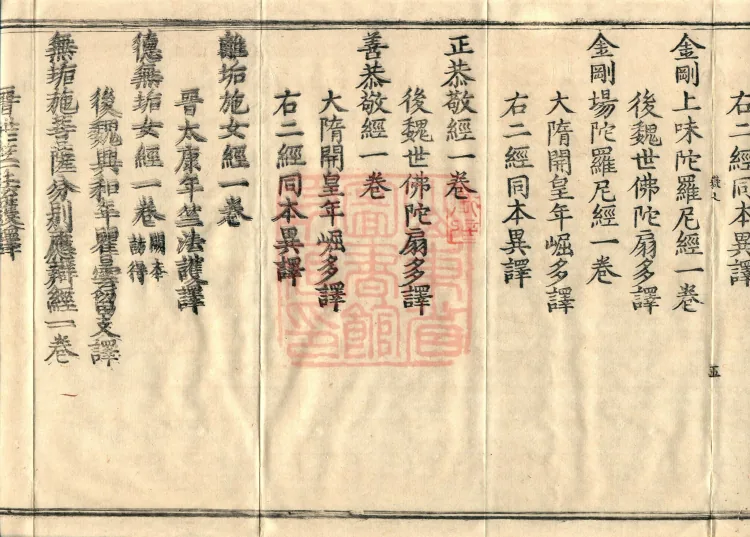 右二經同本異譯
五
金剛上味陀羅尼經一卷
後魏世佛陀扇多譯
金剛場陀羅尼經一卷
大隋開皇年崛多譯
右二經同本異譯
正恭敬經一卷
後魏世佛陀扇多譯
善恭敬經一卷
大隋開皇年崛多譯
右二經同本異譯
離垢施女經一卷
晉太康年竺法護譯
德無垢女經一卷闕本訪得
後魏興和年瞿曇留支譯
無垢施菩薩分別應辯經一卷